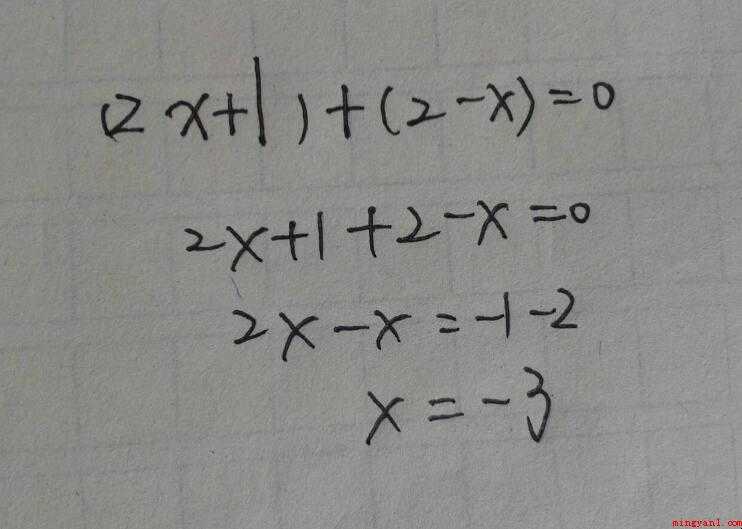 (2x+1)+(2-x)=0
2x+1+2-x=0
2x-x=-1-2
x=-3
mingyan1.com